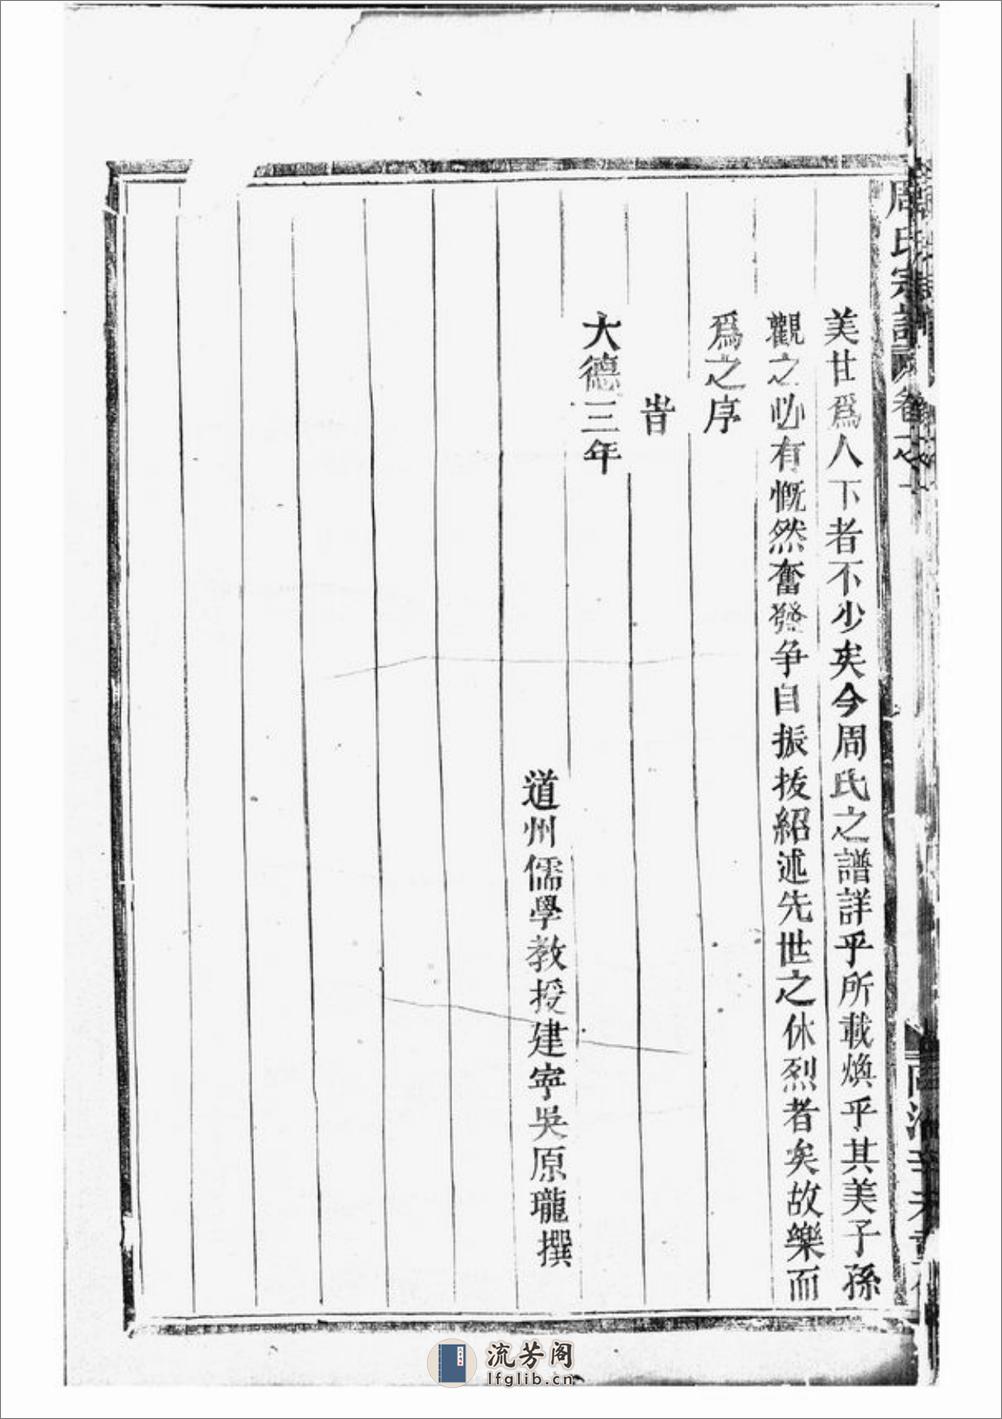 周氏宗譜 卷之
美廿爲人下者不少矣今周氏之譜詳乎所載煥乎其美子孫
觀之必有慨然奮發争自振拔紹述先世之休烈者矣故樂而
爲之序
旹
大德三年
道州儒學教授建寕吳原瓏撰
流芳阁
lfglib.cn